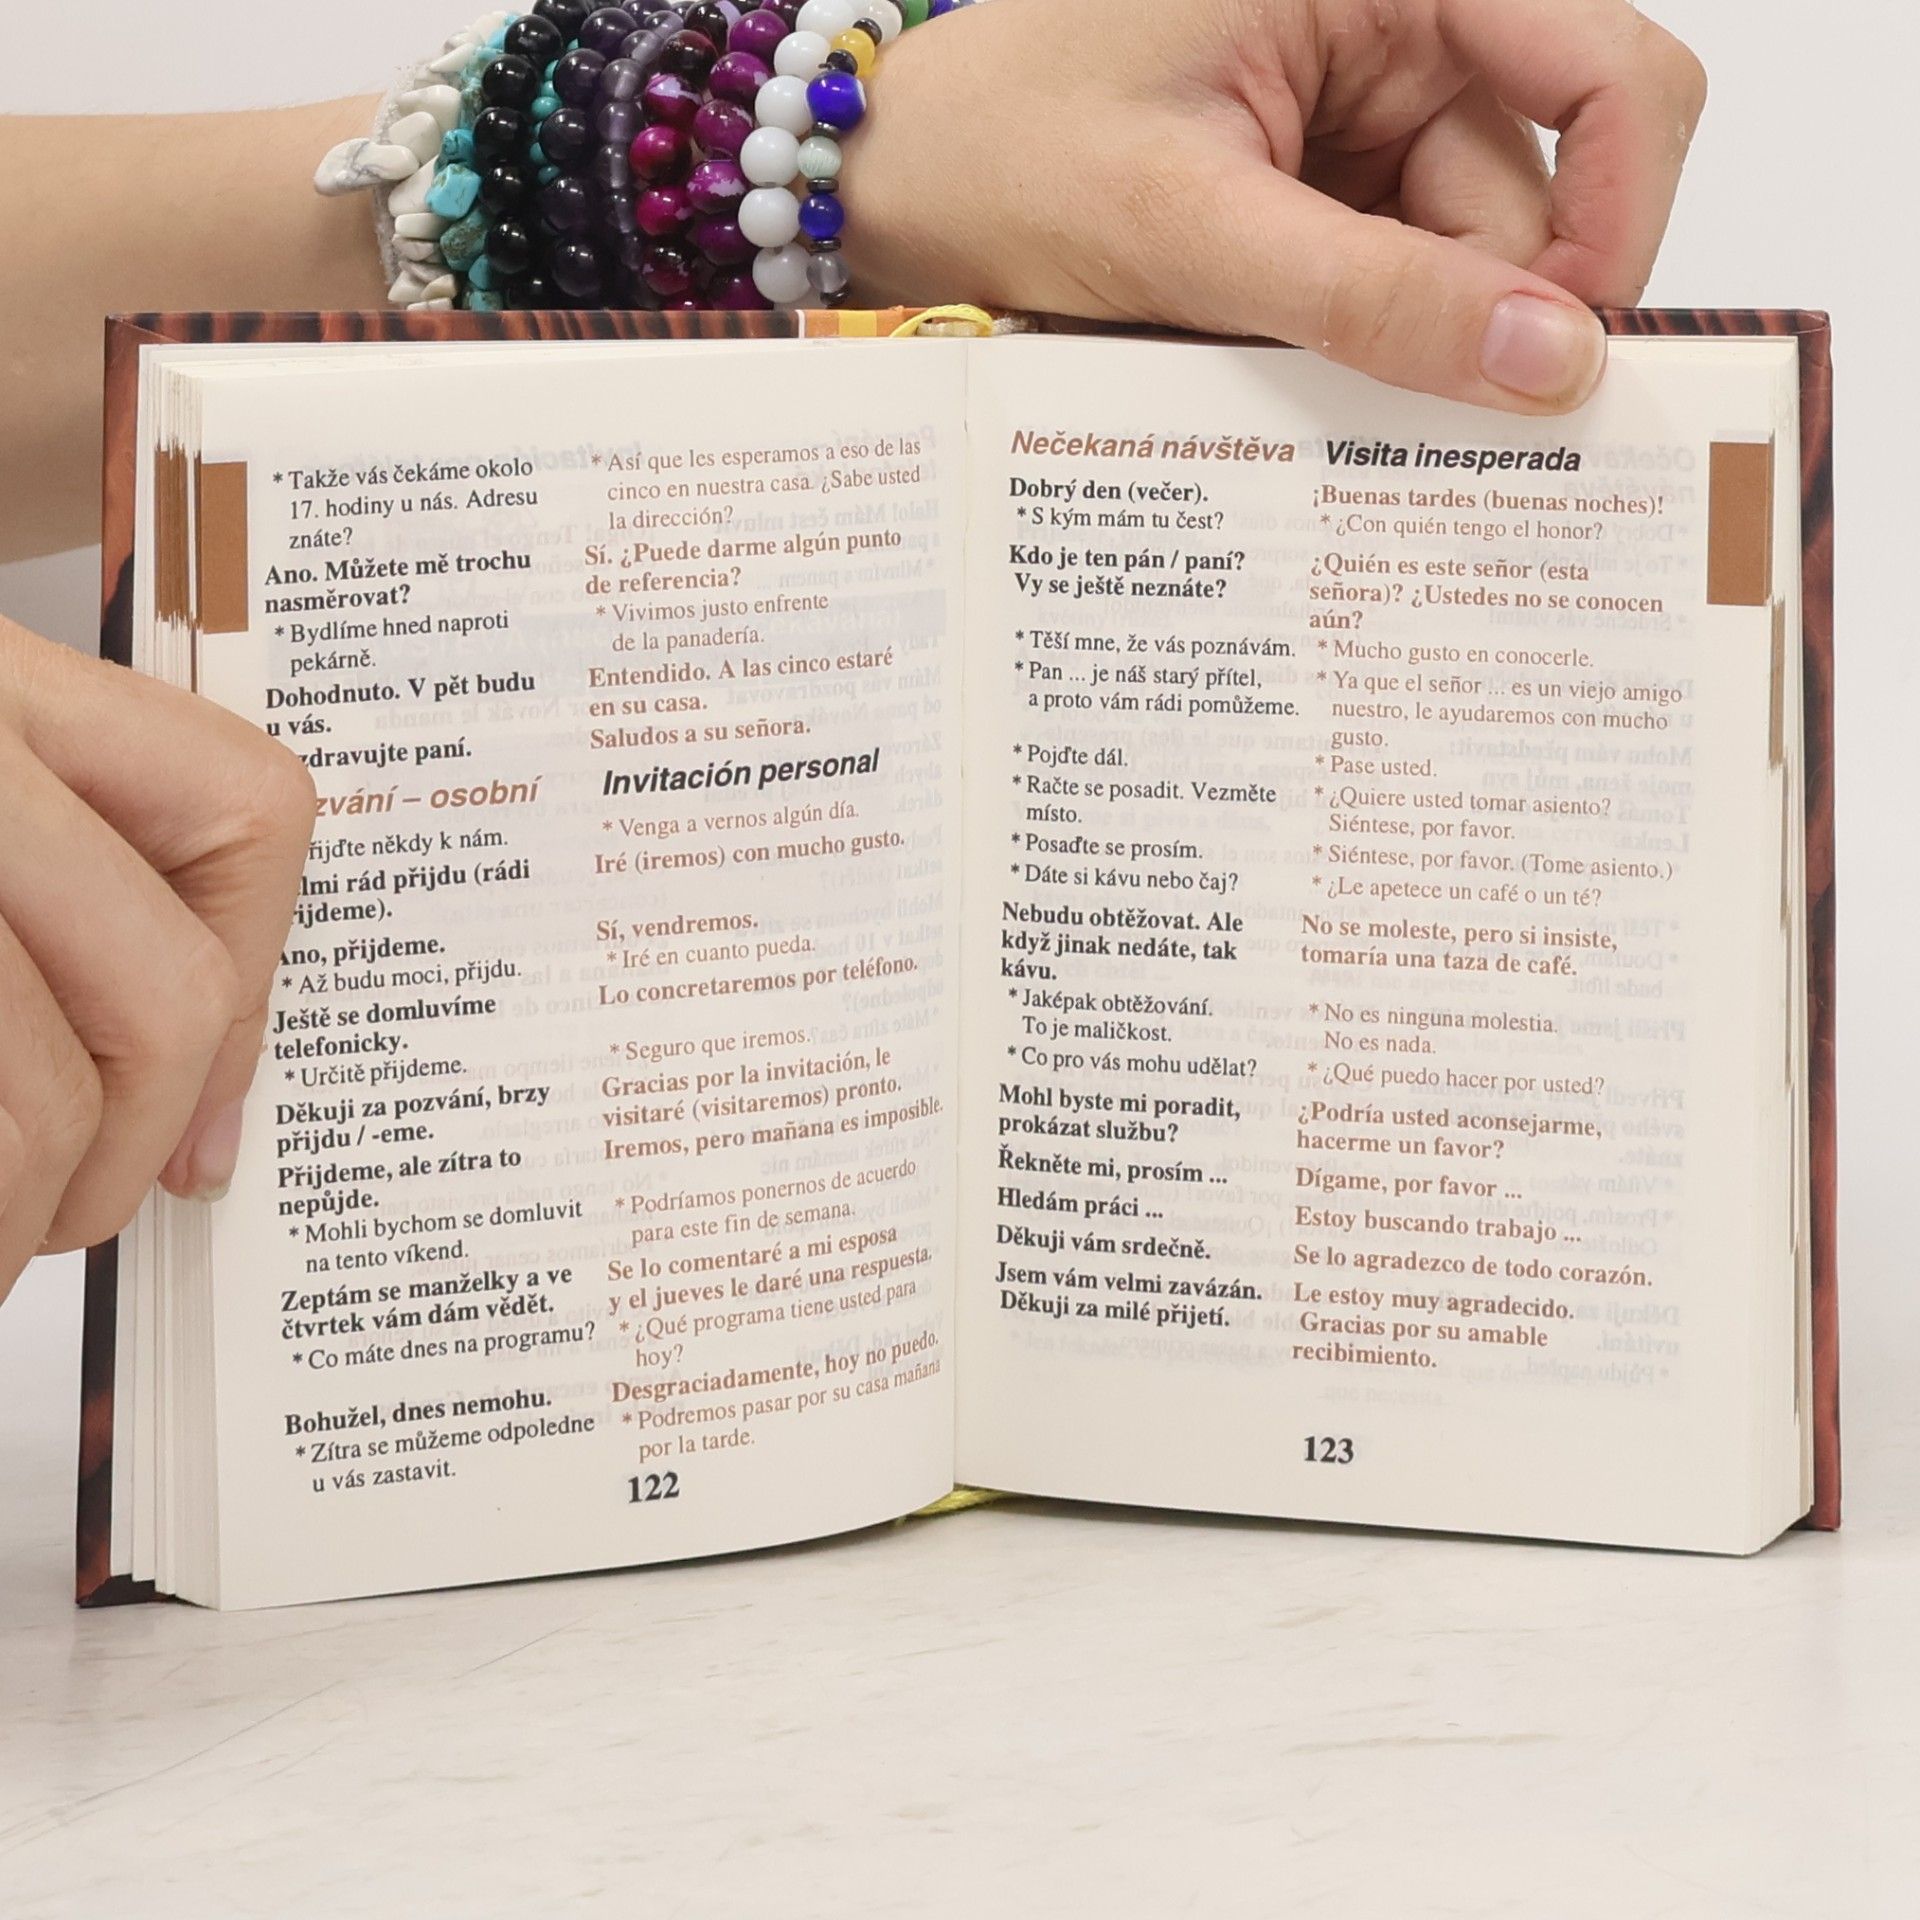 * Takže vás čekáme okolo
17. hodiny u nás. Adresu
znáte?
Ano. Můžete mě trochu
nasměrovat?
* Bydlíme hned naproti
pekárně.
Dohodnuto. V pět budu
u vás.
zdravujte paní.
zvání – osobní
řijďte někdy k nám.
lmi rád přijdu (rádi
řijdeme).
Ano, přijdeme.
* Až budu moci, přijdu.
Ještě se domluvíme
telefonicky.
* Určitě přijdeme.
Děkuji za pozvání, brzy
přijdu / -eme.
Přijdeme, ale zítra to
nepůjde.
* Mohli bychom se domluvit
na tento víkend.
Zeptám se manželky a ve
čtvrtek vám dám vědět.
* Co máte dnes na programu?
Bohužel, dnes nemohu.
* Zítra se můžeme odpoledne
u vás zastavit.
* Así que les esperamos a eso de las
cinco en nuestra casa. ¿Sabe usted
la dirección?
Sí. ¿Puede darme algún punto
de referencia?
* Vivimos justo enfrente
de la panadería.
Entendido. A las cinco estaré
en su casa.
Saludos a su señora.
Invitación personal
* Venga a vernos algún día.
Iré (iremos) con mucho gusto.
Sí, vendremos.
* Iré en cuanto pueda.
Lo concretaremos por teléfono.
* Seguro que iremos.
Gracias por la invitación, le
visitaré (visitaremos) pronto.
Iremos, pero mañana es imposible.
* Podríamos ponernos de acuerdo
para este fin de semana.
Se lo comentaré a mi esposa
y el jueves le daré una respuesta.
* ¿Qué programa tiene usted para
hoy?
Desgraciadamente, hoy no puedo.
* Podremos pasar por su casa mañana
por la tarde.
122
Nečekaná návštěva
Dobrý den (večer).
* S kým mám tu čest?
Kdo je ten pán / paní?
Vy se ještě neznáte?
* Těší mne, že vás poznávám.
* Pan ... je náš starý přítel,
a proto vám rádi pomůžeme.
* Pojďte dál.
* Račte se posadit. Vezměte
místo.
* Posaďte se prosím.
* Dáte si kávu nebo čaj?
Nebudu obtěžovat. Ale
když jinak nedáte, tak
kávu.
* Jaképak obtěžování.
To je maličkost.
* Co pro vás mohu udělat?
Mohl byste mi poradit,
prokázat službu?
Řekněte mi, prosím ...
Hledám práci ...
Děkuji vám srdečně.
Jsem vám velmi zavázán.
Děkuji za milé přijetí.
Visita inesperada
¡Buenas tardes (buenas noches)!
* ¿Con quién tengo el honor?
¿Quién es este señor (esta
señora)? ¿Ustedes no se conocen
aún?
* Mucho gusto en conocerle.
* Ya que el señor ... es un viejo amigo
nuestro, le ayudaremos con mucho
gusto.
* Pase usted.
* ¿Quiere usted tomar asiento?
Siéntese, por favor.
* Siéntese, por favor. (Tome asiento.)
* ¿Le apetece un café o un té?
No se moleste, pero si insiste,
tomaría una taza de café.
* No es ninguna molestia.
No es nada.
* ¿Qué puedo hacer por usted?
¿Podría usted aconsejarme,
hacerme un favor?
Dígame, por favor ...
Estoy buscando trabajo ...
Se lo agradezco de todo corazón.
Le estoy muy agradecido.
Gracias por su amable
recibimiento.
123